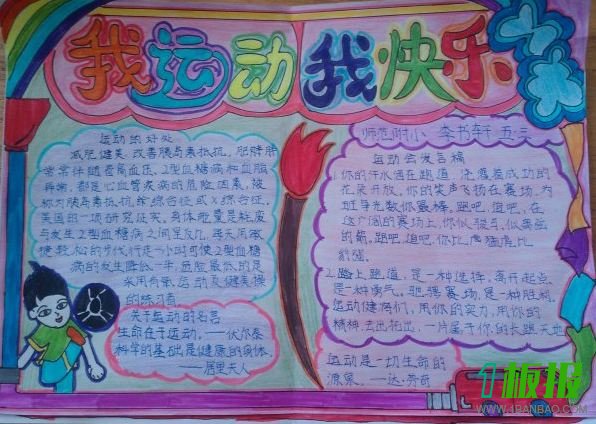 我运动 我快乐
运动的好处
减肥健美,改善胰岛素抵抗,肥胖常
常常伴随着高血压、2型血糖病和血脂
异常,都是心血管疾病的危险因素,被
称为胰岛素抵抗综合征或X综合征,
美国的一项研究证实,身体能量是耗废
与发生2型血糖病之间呈反几,每天用敏
捷轻松的步伐行走一小时可使2型血糖
病的发生降低一半,危险最低的是
采用有氧运动及健美操
的练习者
关于运动的名言
生命在于运动。——伏尔泰
科学的基础是健康的身体。
——居里夫人
师范附小 李书轩 五、三
运动会发言稿
1.你的汗水洒在跑道,浇灌着成功的
花朵开放。你的笑声飞扬在赛场,为
班争光数你最棒。跑吧,追吧,在
这广阔的赛场上,你似骏马,似离弦
的箭。跑吧,追吧,你比虎猛虎比
豹强。
2.踏上跑道,是一种选择,离开起点,
是一种勇气。驰骋赛场,是一种胜利。
运动健儿们,用你的实力,用你的
精神,去出托出,一片属于你的长跑天地
运动是一切生命的
源泉。——达·芬奇
1板报
WWW.1BANBAO.COM